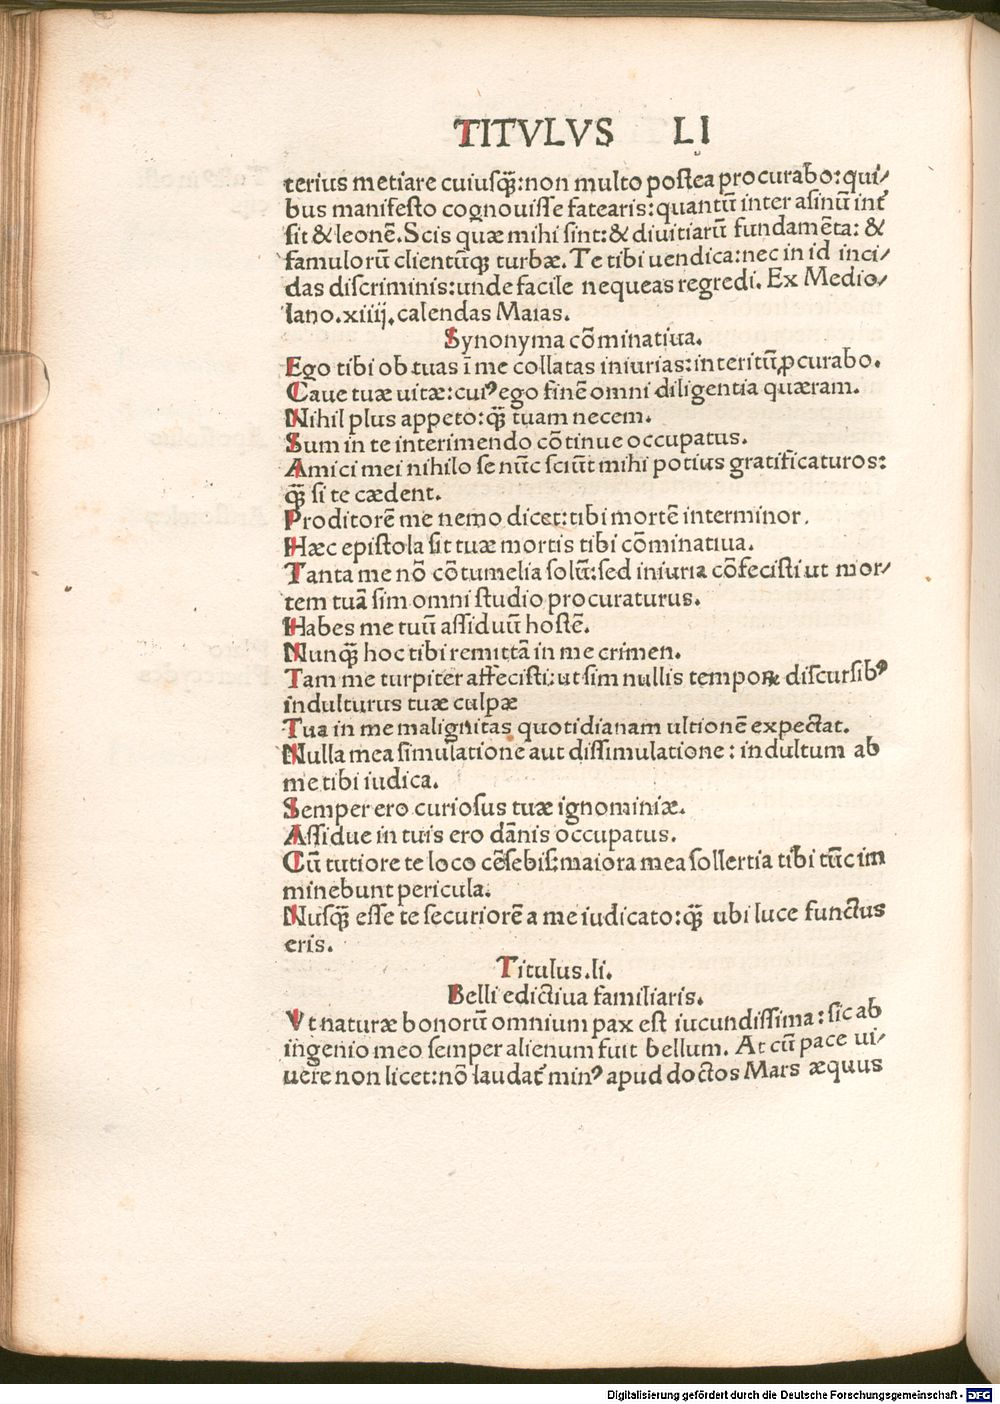 TITVLVS LI
terius metiare cuiusq̄ꝫ:non multo postea procurabo:qui/
bus manifesto cognouisse fatearis:quantū inter asinū int̄
sit & leonē. Scis quæ mihi sint:& diuitiarū fundamēta: &
famulorū clientūqꝫ turbæ. Te tibi uendica:nec in id inci/
das discriminis:unde facile nequeas regredi. Ex Medio/
lano.xiiij.calendas Maias.
Synonyma cōminatiua.
Ego tibi ob tuas ī me collatas iniurias:interitū ꝓcurabo.
Caue tuæ uitæ:cuiꝰ ego finē omni diligentia quæram.
Nihil plus appeto:q̄ꝫ tuam necem.
Sum in te interimendo cōtinue occupatus.
Amici mei nihilo se nūc sciūt mihi potius gratificaturos:
q̄ꝫ si te cædent.
Proditorē me nemo dicet:tibi mortē interminor.
Hæc epistola sit tuæ mortis tibi cōminatiua.
Tanta me nō cōtumelia solū:sed iniuria cōfecisti ut mor/
tem tuā sim omni studio procuraturus.
Habes me tuū assiduū hostē.
Nunq̄ꝫ hoc tibi remittā in me crimen.
Tam me turpiter affecisti:ut sim nullis tempoꝝ discursibꝰ
indulturus tuæ culpæ
Tua in me malignitas quotidianam ultionē expectat.
Nulla mea simulatione aut dissimulatione: indultum ab
me tibi iudica.
Semper ero curiosus tuæ ignominiæ.
Assidue in tuis ero dānis occupatus.
Cū tutiore te loco cēsebis:maiora mea sollertia tibi tūc im
minebunt pericula.
Nusq̄ꝫ esse te securiorē a me iudicato:q̄ꝫ ubi luce functus
eris.
Titulus.li.
Belli edictiua familiaris.
Vt naturæ bonorū omnium pax est iucundissima: sic ab
ingenio meo semper alienum fuit bellum. At cū pace ui/
uere non licet:nō laudat̄ minꝰ apud doctos Mars æquus
Digitalisierung gefördert durch die Deutsche Forschungsgemeinschaft - DFG